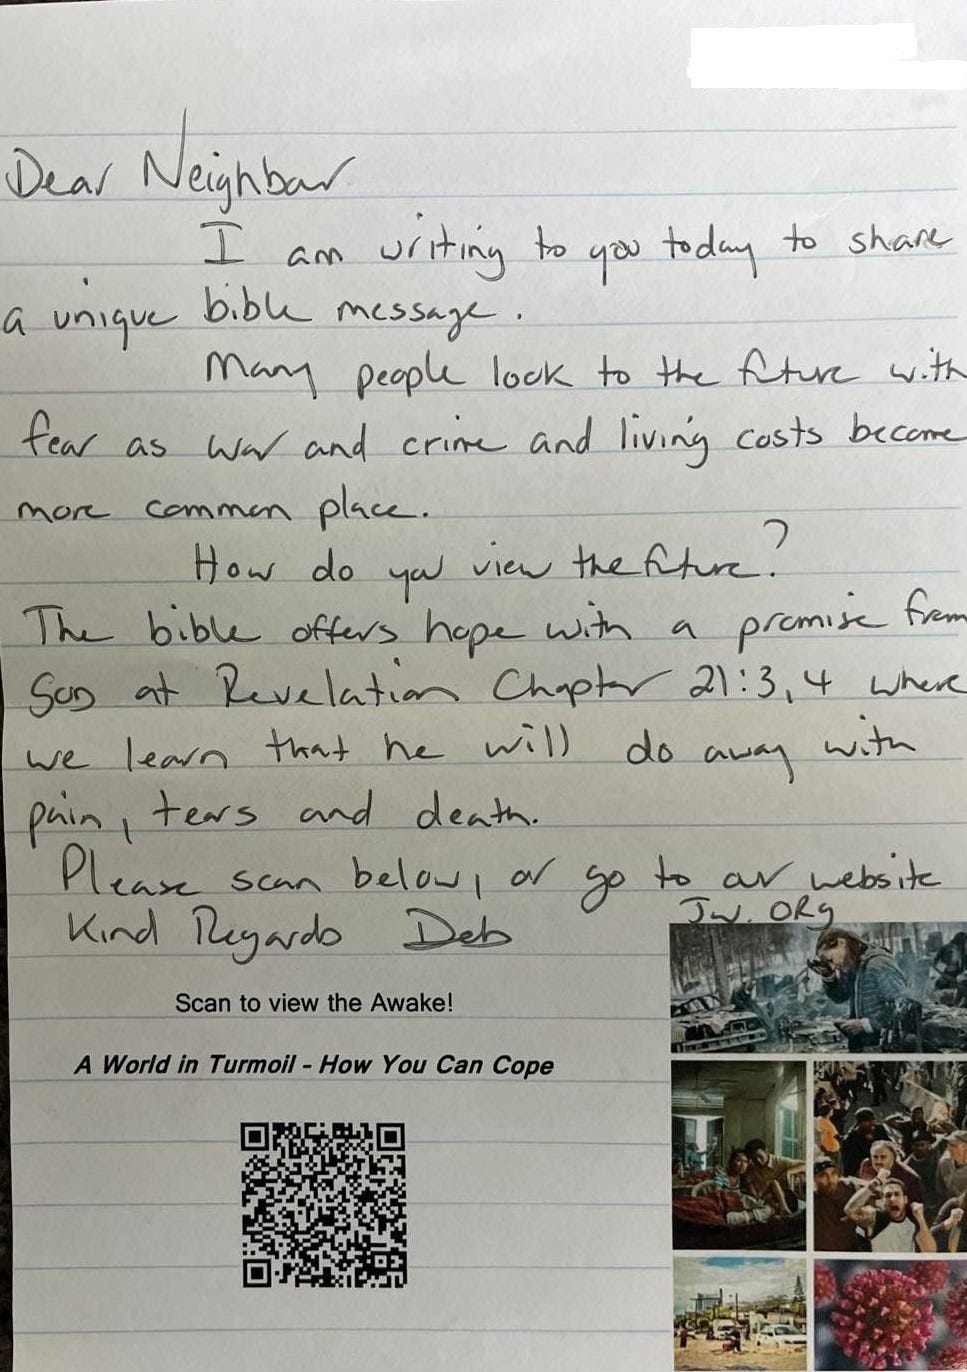 Dear Neighbour
I am writing to you today to share
a unique bible message.
Many people look to the future with
fear as war and crime and living costs become
more common place.
How do you view the future?
The bible offers hope with a promise from
God at Revelation Chapter 21:3,4 where
we learn that he will do away with
pain, tears and death.
Please scan below, or go to our website
JW.ORG
Kind Regards Deb
Scan to view the Awake!
A World in Turmoil - How You Can Cope